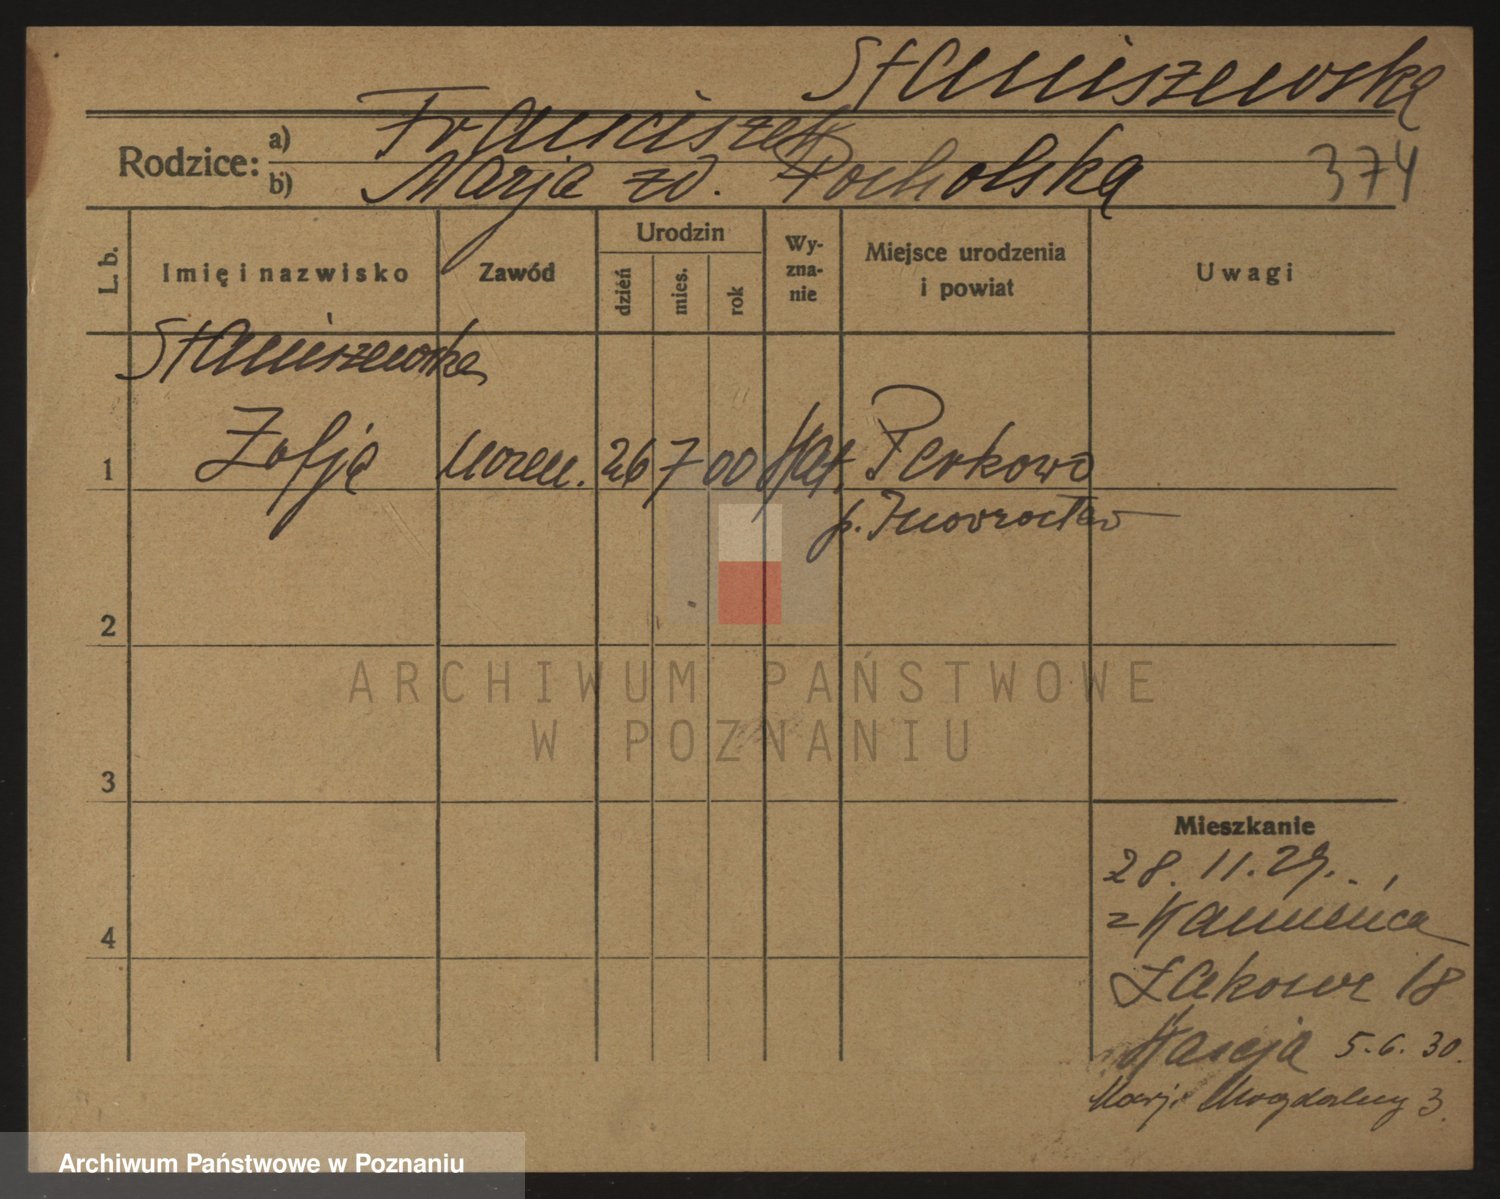 Staniszewska
Rodzice: a) Franciszek
b) Marja zd. Pocholska
374
L. b.
Imię i nazwisko
Zawód
Urodzin
dzień
mies.
rok
Wy-
zna-
nie
Miejsce urodzenia
i powiat
Uwagi
Staniszewska
1 Zofja uczen. 26 7 00 Kat. Perkowo
p. Inowrocław
2
ARCHIWUM PAŃSTWOWE
W POZNANIU
3
Mieszkanie
28. 11. 29.
z Kamieńca
4
Łąkowa 18
5. 6. 30.
Marji Magdaleny 3
Archiwum Państwowe w Poznaniu